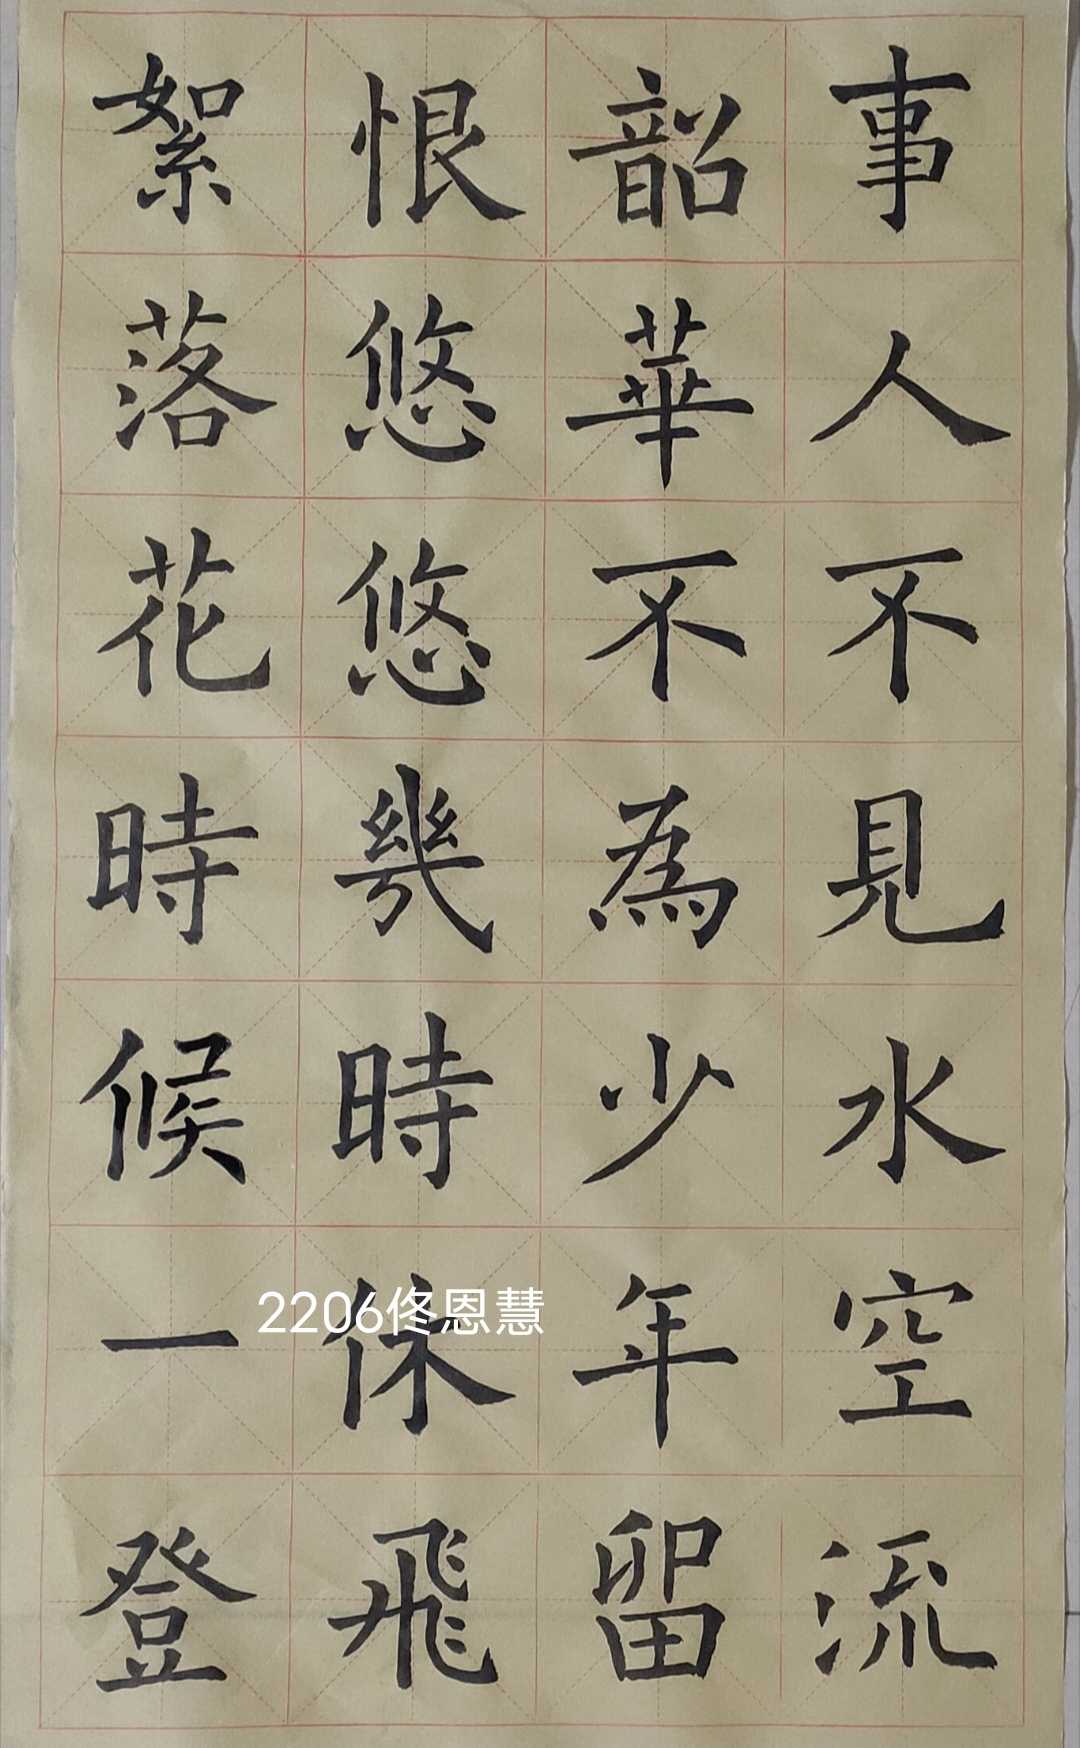 事人不見水空流
韶華不為少年留
恨悠悠幾時休飛
絮落花時候一登
2206佟恩慧